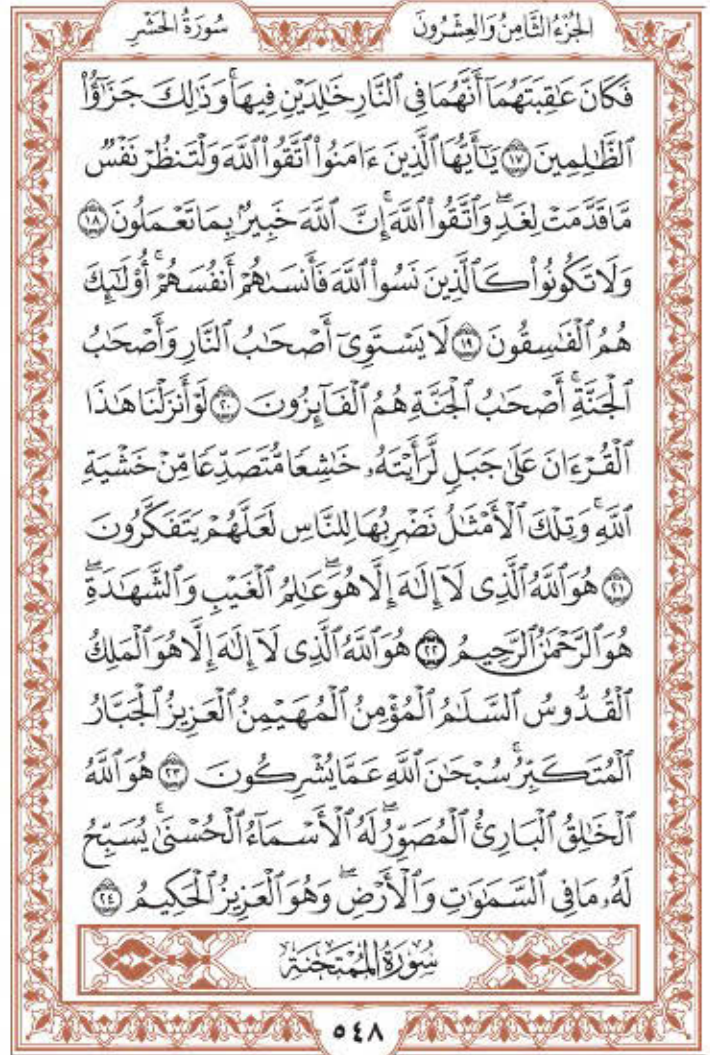 الجُزْءُ الثَّامِنُ وَالْعِشْرُونَ سُورَةُ الحَشْرِ
فَكَانَ عَٰقِبَتَهُمَآ أَنَّهُمَا فِي ٱلنَّارِ خَٰلِدَيْنِ فِيهَاۚ وَذَٰلِكَ جَزَٰٓؤُا۟
ٱلظَّٰلِمِينَ ۝١٧ يَٰٓأَيُّهَا ٱلَّذِينَ ءَامَنُوا۟ ٱتَّقُوا۟ ٱللَّهَ وَلْتَنظُرْ نَفْسٌ
مَّا قَدَّمَتْ لِغَدٍۖ وَٱتَّقُوا۟ ٱللَّهَۚ إِنَّ ٱللَّهَ خَبِيرٌۢ بِمَا تَعْمَلُونَ ۝١٨
وَلَا تَكُونُوا۟ كَٱلَّذِينَ نَسُوا۟ ٱللَّهَ فَأَنسَىٰهُمْ أَنفُسَهُمْۚ أُو۟لَٰٓئِكَ
هُمُ ٱلْفَٰسِقُونَ ۝١٩ لَا يَسْتَوِىٓ أَصْحَٰبُ ٱلنَّارِ وَأَصْحَٰبُ
ٱلْجَنَّةِۚ أَصْحَٰبُ ٱلْجَنَّةِ هُمُ ٱلْفَآئِزُونَ ۝٢٠ لَوْ أَنزَلْنَا هَٰذَا
ٱلْقُرْءَانَ عَلَىٰ جَبَلٍ لَّرَأَيْتَهُۥ خَٰشِعًا مُّتَصَدِّعًا مِّنْ خَشْيَةِ
ٱللَّهِۚ وَتِلْكَ ٱلْأَمْثَٰلُ نَضْرِبُهَا لِلنَّاسِ لَعَلَّهُمْ يَتَفَكَّرُونَ
۝٢١ هُوَ ٱللَّهُ ٱلَّذِى لَآ إِلَٰهَ إِلَّا هُوَۖ عَٰلِمُ ٱلْغَيْبِ وَٱلشَّهَٰدَةِۖ
هُوَ ٱلرَّحْمَٰنُ ٱلرَّحِيمُ ۝٢٢ هُوَ ٱللَّهُ ٱلَّذِى لَآ إِلَٰهَ إِلَّا هُوَ ٱلْمَلِكُ
ٱلْقُدُّوسُ ٱلسَّلَٰمُ ٱلْمُؤْمِنُ ٱلْمُهَيْمِنُ ٱلْعَزِيزُ ٱلْجَبَّارُ
ٱلْمُتَكَبِّرُۚ سُبْحَٰنَ ٱللَّهِ عَمَّا يُشْرِكُونَ ۝٢٣ هُوَ ٱللَّهُ
ٱلْخَٰلِقُ ٱلْبَارِئُ ٱلْمُصَوِّرُۖ لَهُ ٱلْأَسْمَآءُ ٱلْحُسْنَىٰۚ يُسَبِّحُ
لَهُۥ مَا فِى ٱلسَّمَٰوَٰتِ وَٱلْأَرْضِۖ وَهُوَ ٱلْعَزِيزُ ٱلْحَكِيمُ ۝٢٤
سُورَةُ المُمْتَحَنَةِ
٥٤٨